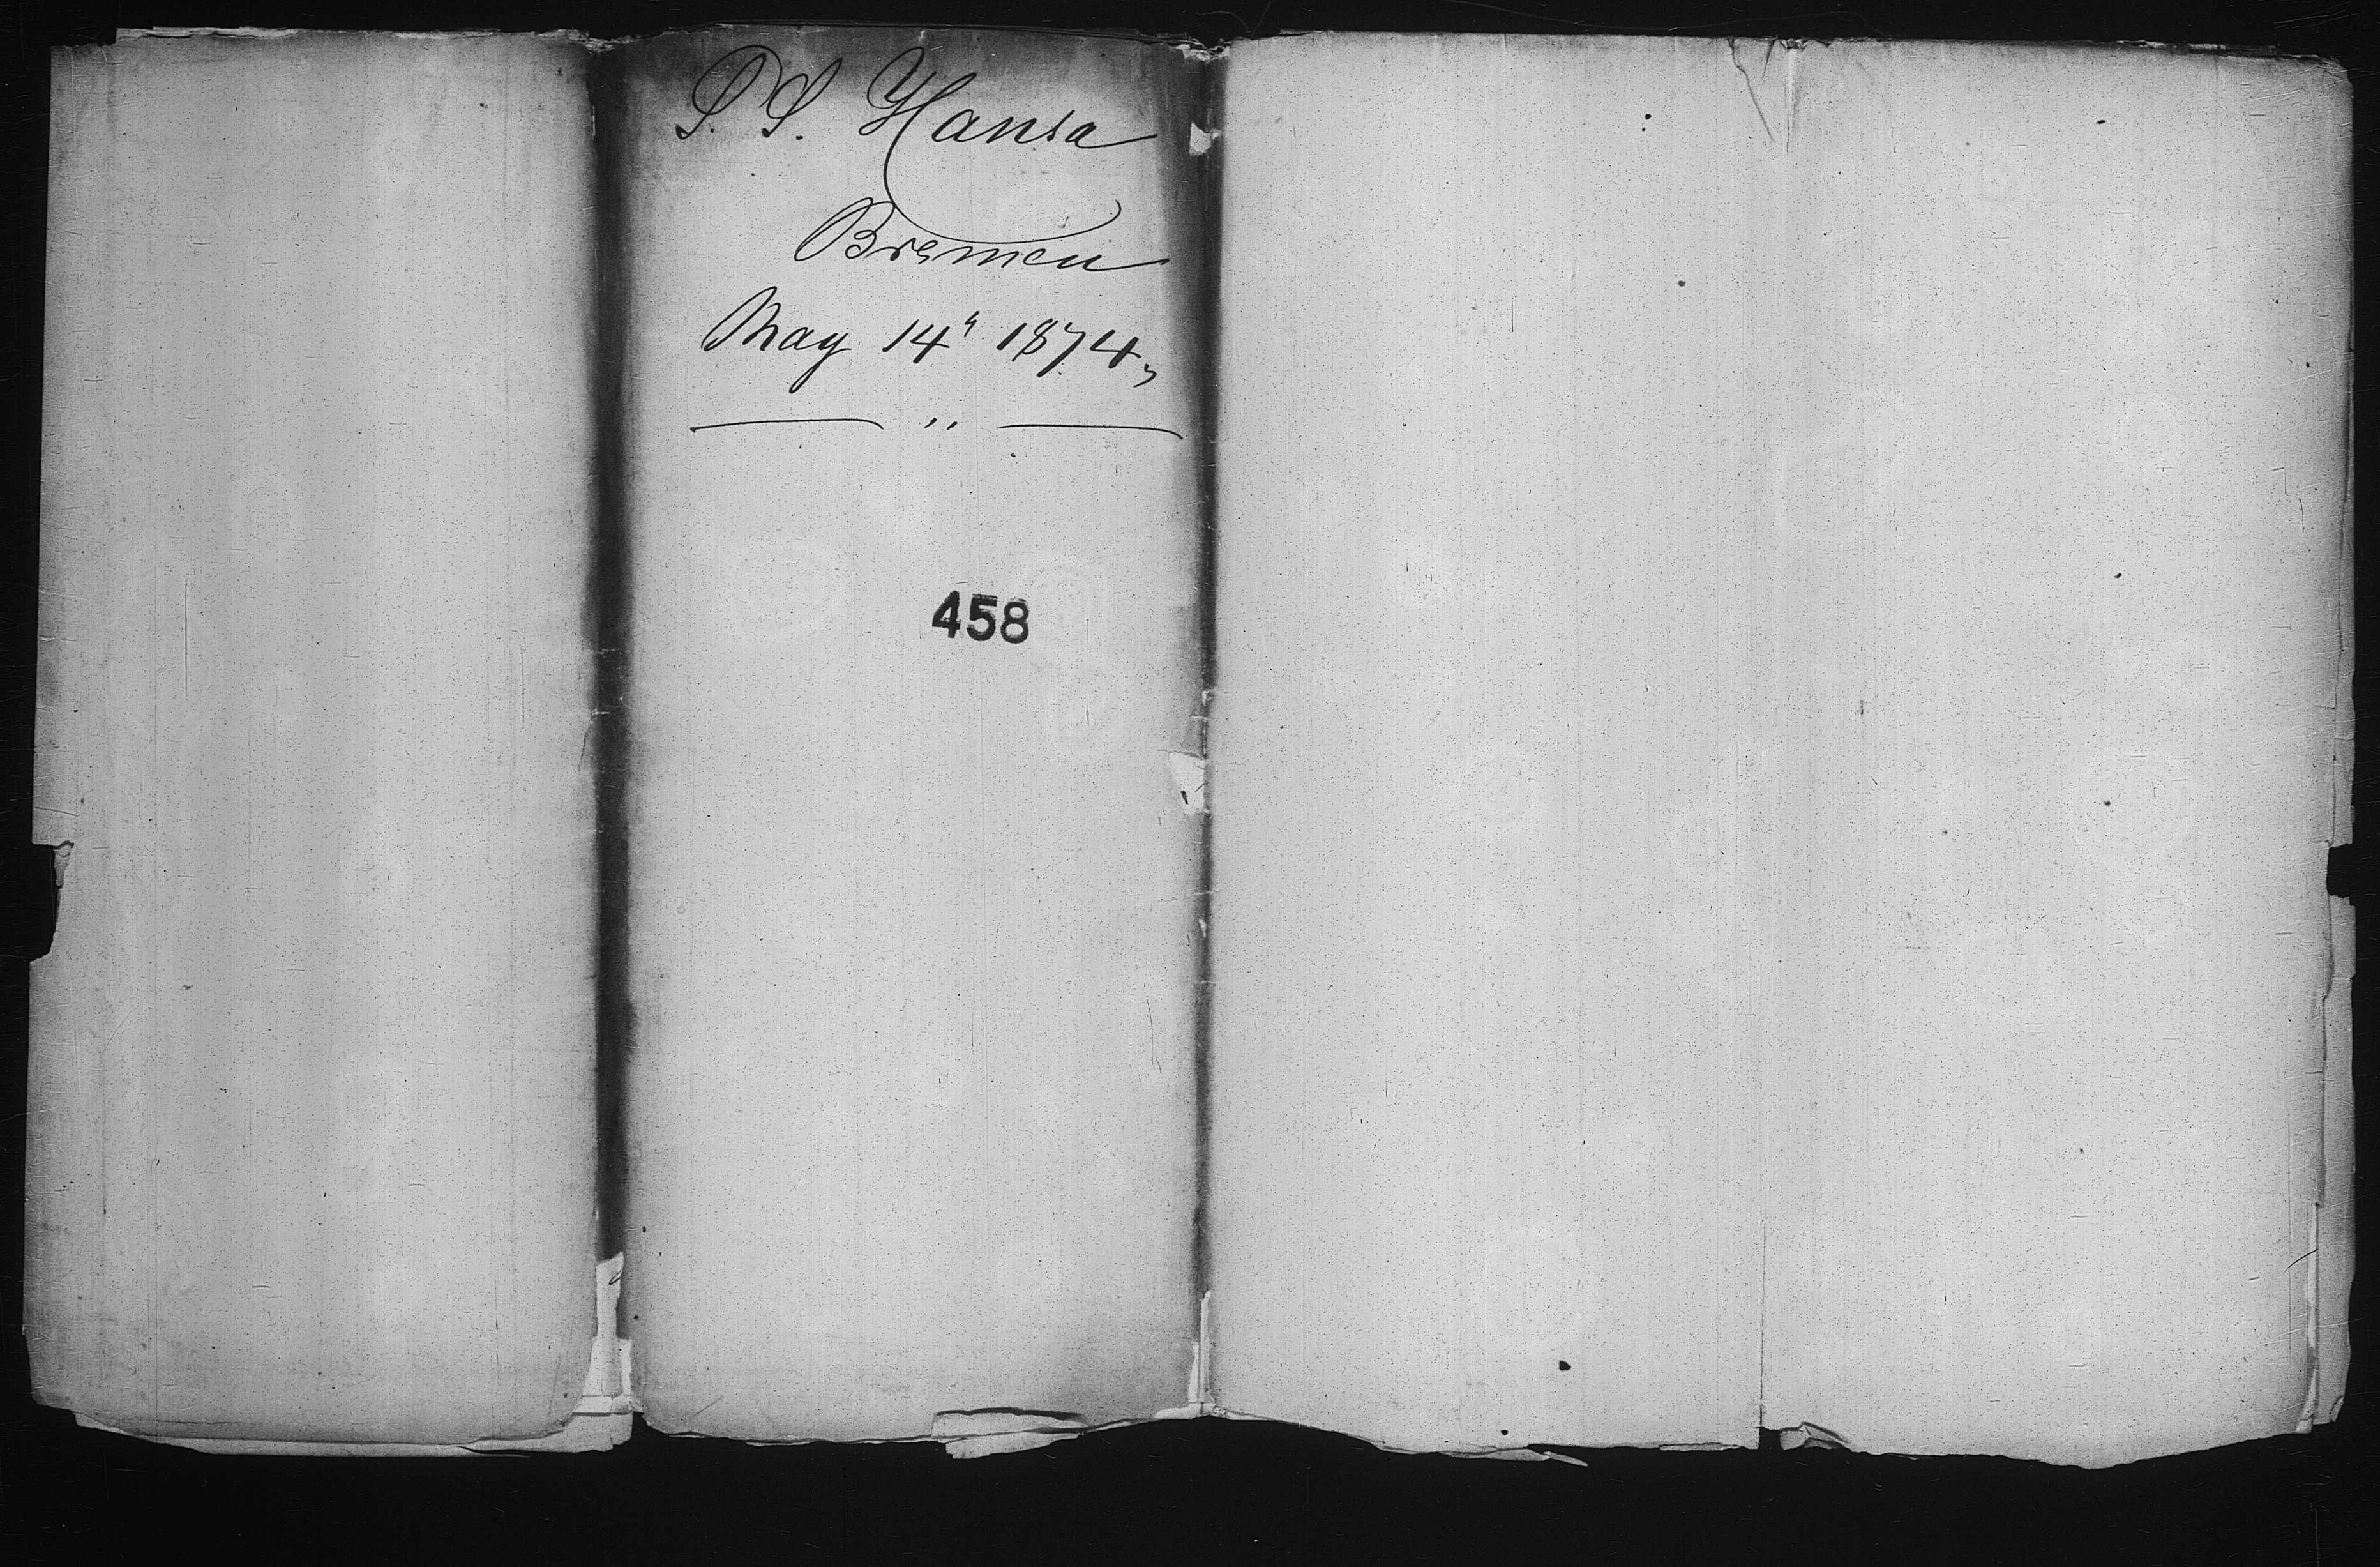 S. S. Hansa
Bremen
May 14" 1874,
— " —
458